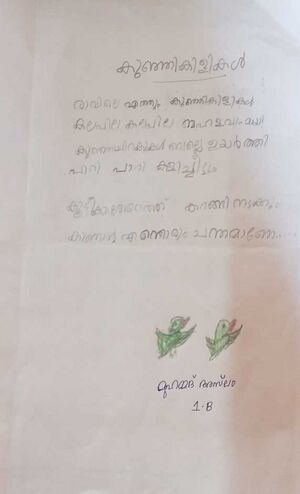 കുഞ്ഞികിളികൾ
രാവിലെ എത്തും കുഞ്ഞികിളികൾ
കലപില കലപില ബഹളവുമായി
കുഞ്ഞിചിറകുകൾ മെല്ലെ ഉയർത്തി
പാറി പാറി കളിച്ചിടും
കറങ്ങി നടക്കും
കാണാൻ എന്തൊരു ചന്തമാണേ..
മുഹമ്മദ് അസ്‌ലം
1.B